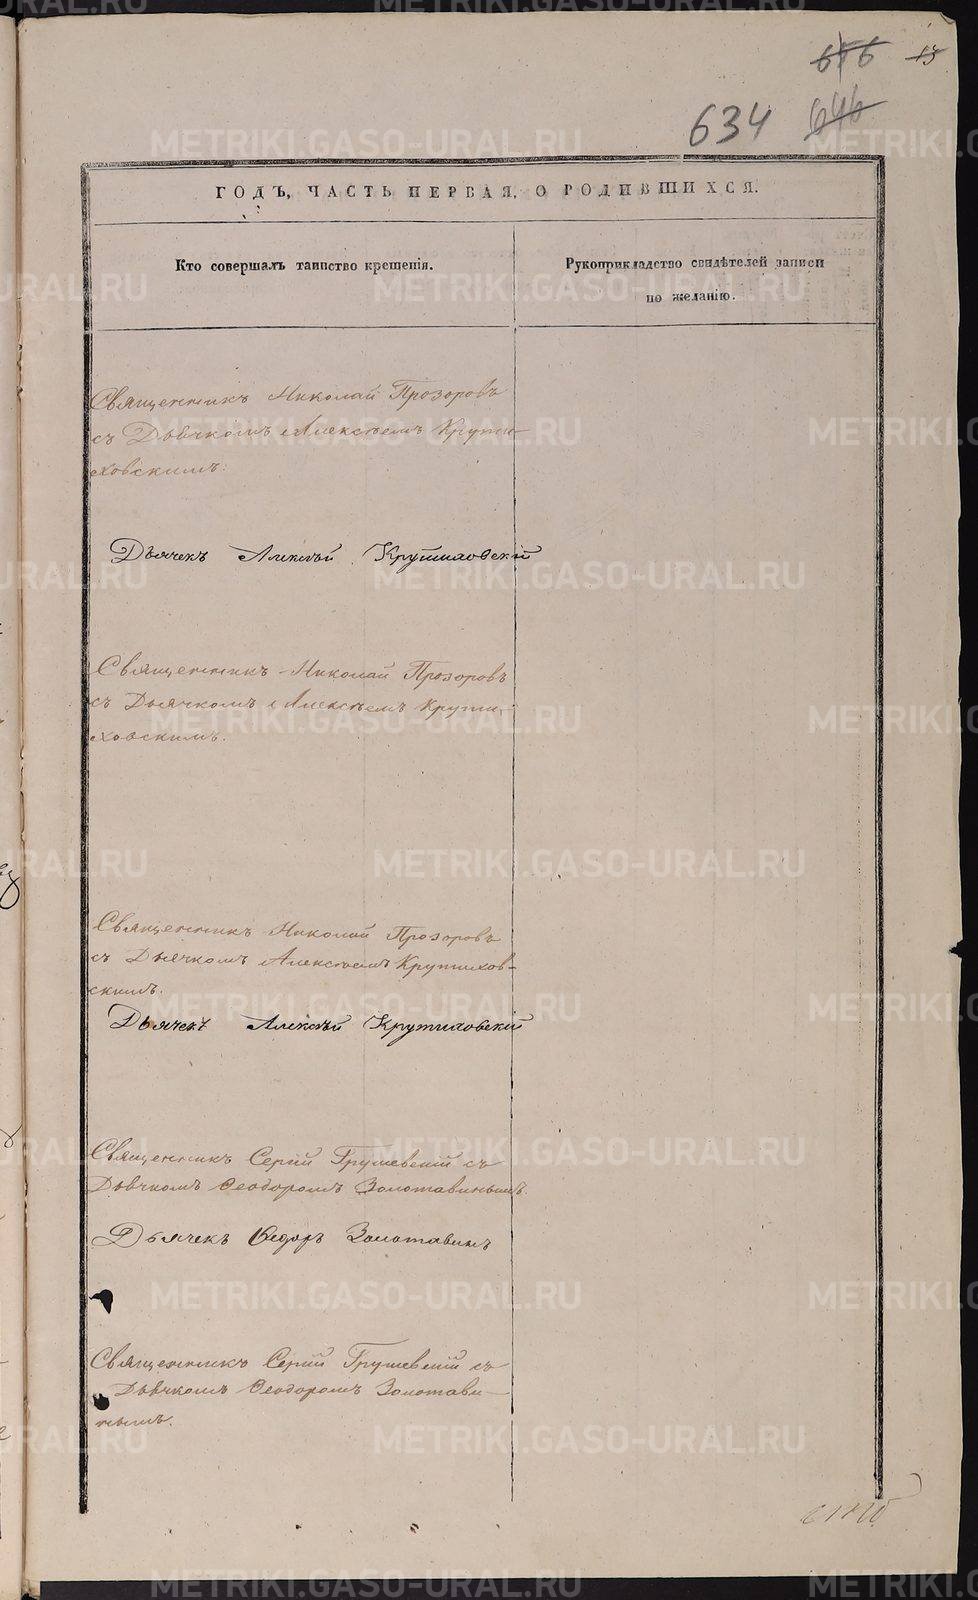 616 13
634 646
ГОДЪ, ЧАСТЬ ПЕРВАЯ, О РОДИВШИХСЯ.
Кто совершалъ таинство крещенія.
Рукоприкладство свидѣтелей записи
по желанію.
Священникъ Николай Прозоровъ
съ Дьячкомъ Алексѣемъ Крути-
ховскимъ.
Дьячекъ Алексѣй Крутиховскій
Священникъ Николай Прозоровъ
съ Дьячкомъ Алексѣемъ Крути-
ховскимъ.
Священникъ Николай Прозоровъ
съ Дьячкомъ Алексѣемъ Крутихов-
скимъ.
Дьячекъ Алексѣй Крутиховскій
Священникъ Сергій Грушевскій съ
Дьячкомъ Ѳеодоромъ Золотавинымъ.
Дьячекъ Ѳедоръ Золотавинъ
Священникъ Сергій Грушевскій съ
Дьячкомъ Ѳеодоромъ Золотави-
нымъ.
METRIKI.GASO-URAL.RU